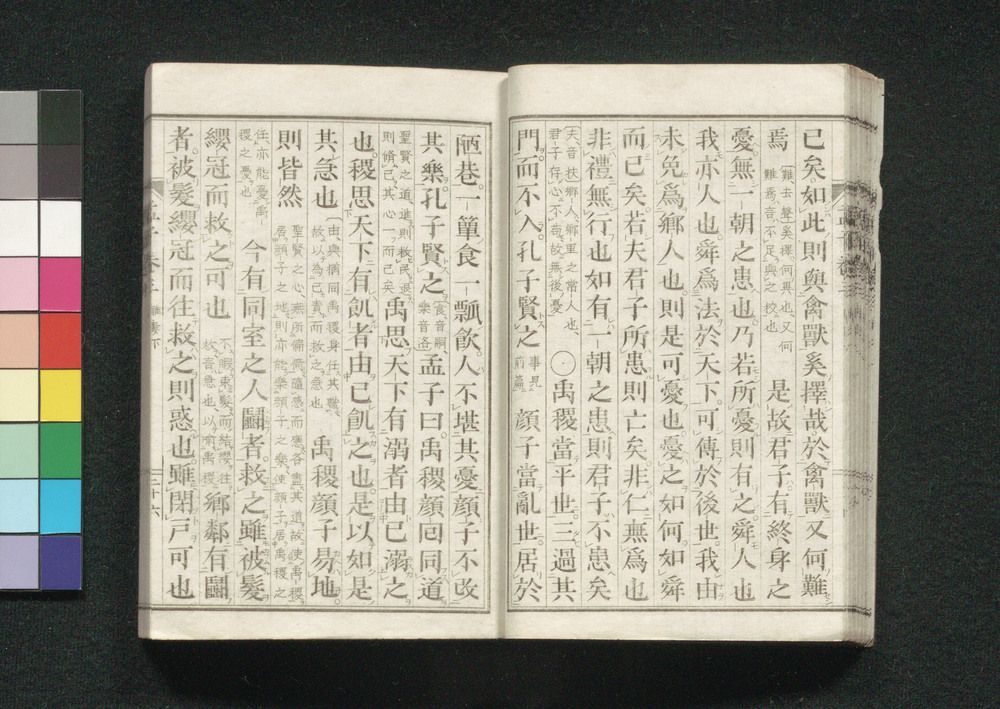 已矣如此則與禽獸奚擇哉於禽獸又何難
焉難去聲奚擇何異也又何難焉言不足與之校也是故君子有終身之
憂無一朝之患也乃若所憂則有之舜人也
我亦人也舜爲法於天下可傳於後世我由
未免爲鄉人也則是可憂也憂之如何如舜
而已矣若夫君子所患則亡矣非仁無爲也
非禮無行也如有一朝之患則君子不患矣
夫音扶鄉人鄉里之常人也君子存心不苟故無後憂○禹稷當平世三過其
門而不入孔子賢之事見前篇顏子當亂世居於
陋巷一簞食一瓢飮人不堪其憂顏子不改
其樂孔子賢之食音嗣樂音洛孟子曰禹稷顏回同道
聖賢之道進則救民退則脩己其心一而已矣禹思天下有溺者由己溺之
也稷思天下有飢者由己飢之也是以如是
其急也由與猶同禹稷身任其職故以爲己責而救之急也禹稷顏子易地
則皆然聖賢之心無所偏倚隨感而應各盡其道故使禹稷居顏子之地則亦能樂顏子之樂使顏子居禹稷之
任亦能憂禹稷之憂也今有同室之人鬭者救之雖被髮
纓冠而救之可也不暇束髮而結纓往救言急也以喻禹稷鄉鄰有鬭
者被髮纓冠而往救之則惑也雖閉戸可也
二十六